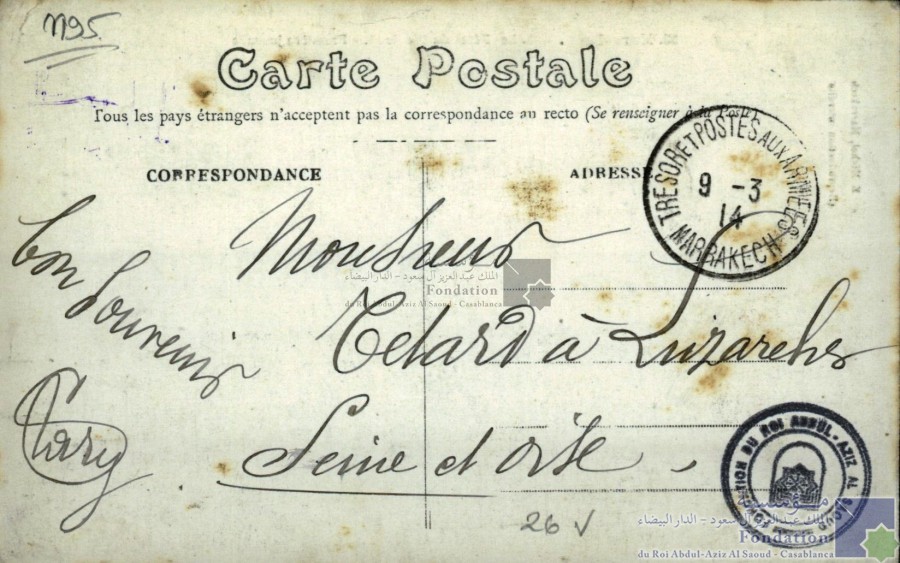 1195
Carte Postale
Tous les pays étrangers n'acceptent pas la correspondance au recto (Se renseigner à la Poste)
CORRESPONDANCE
ADRESSE
TRESOR ET POSTES AUX ARMEES
9 - 3
14
MARRAKECH
bon Souvenir
Monsieur
Telard à Luzarches
Seine et oise
26
الملك عبد العزيز آل سعود - الدار البيضاء
Fondation
du Roi Abdul-Aziz Al Saoud - Casablanca
FONDATION DU ROI ABDUL-AZIZ AL SAOUD
مؤسسة
الملك عبد العزيز آل سعود - الدار البيضاء
Fondation
du Roi Abdul-Aziz Al Saoud - Casablanca